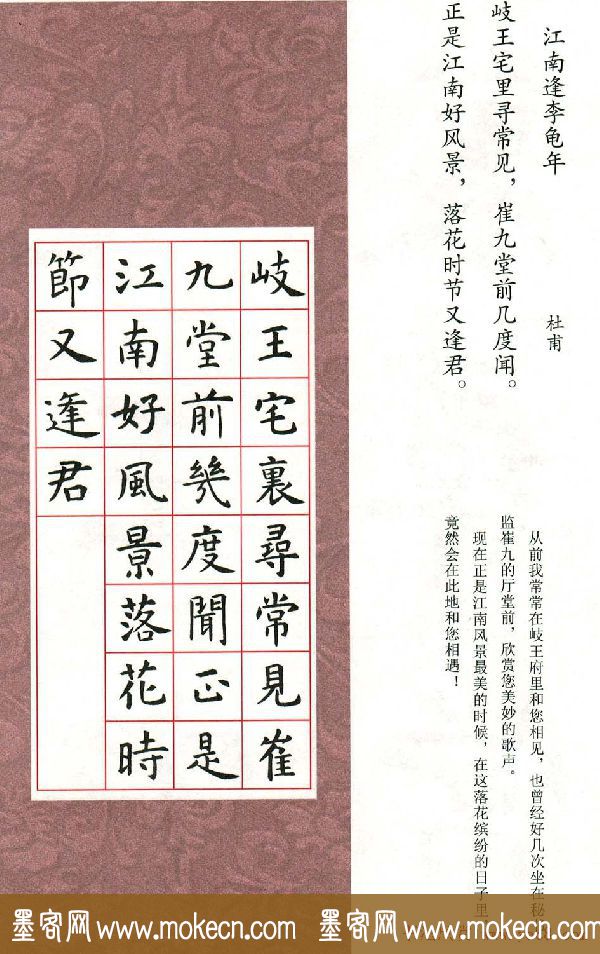 江南逢李龟年
杜甫
岐王宅里寻常见，崔九堂前几度闻。
正是江南好风景，落花时节又逢君。
从前我常常在岐王府里和您相见，也曾经好几次坐在秘
监崔九的厅堂前，欣赏您美妙的歌声。
现在正是江南风景最美的时候，在这落花缤纷的日子里
竟然会在此地和您相遇！
岐王宅裏尋常見崔
九堂前幾度聞正是
江南好風景落花時
節又逢君
墨客网 www.mokecn.com 墨客网 www.mokecn.com